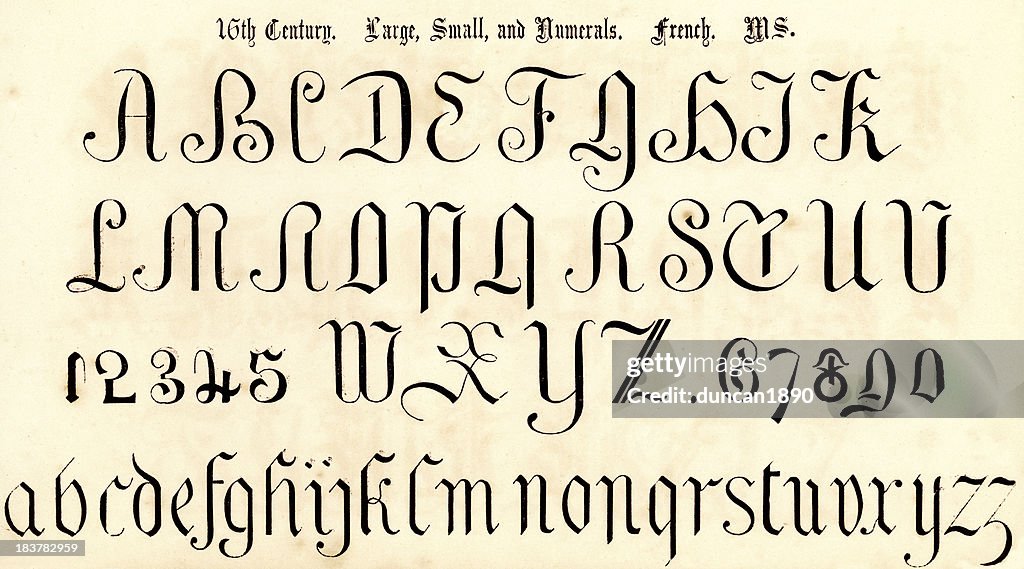 16th Century. Large, Small, and Numerals. French. MS.
A B C D E F G H I K
L M N O P Q R S T U V
1 2 3 4 5 W X Y Z 6 7 8 9 0
gettyimages®
duncan1890
a b c d e f g h i j k l m n o p q r s t u v x y z z
183782959